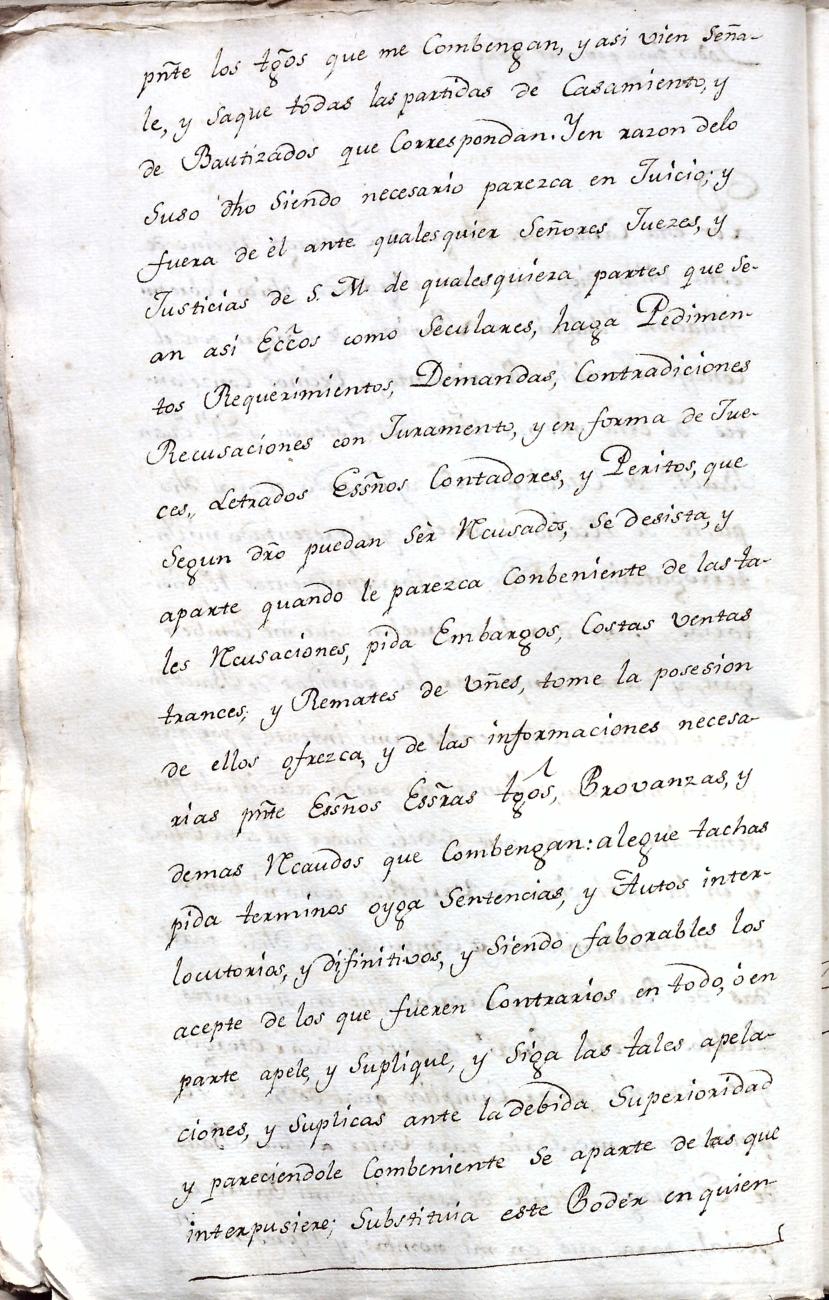 pñte los tgõs que me Combengan, y asi vien Seña-
le, y Saque todas las partidas de Casamiento, y
de Bautizados que Correspondan. Y en razon delo
Suso dho Siendo necesario parezca en Juicio; y
fuera de èl ante qualesquier Señores Juezes, y
Justicias de S. M. de qualesquiera partes que Se-
an asi Eccõs como Seculares, haga Pedimen-
tos Requerimientos, Demandas, Contradiciones
Recusaciones con Juramento, y en forma de Jue-
ces, Letrados Essños Contadores, y Peritos, que
Segun dr̃o puedan Sèr Rcusados, Se desista, y
aparte quando le parezca Conbeniente de las ta-
les Rcusaciones, pida Embargos, Costas ventas
trances, y Remates de vñes, tome la posesion
de ellos ofrezca, y de las informaciones necesa-
rias pñte Essños Essr̃as tgõs, Provanzas, y
demas Rcaudos que Combengan: alegue tachas
pida terminos oyga Sentencias, y Autos inter-
locutorios, y difinitivos, y Siendo faborables los
acepte de los que fueren Contrarios en todo, ò en
parte apele, y Suplique, y Siga las tales apela-
ciones, y Suplicas ante la debida Superioridad
y pareciendole Combeniente Se aparte de las que
interpusiere; Substituia este Poder en quien